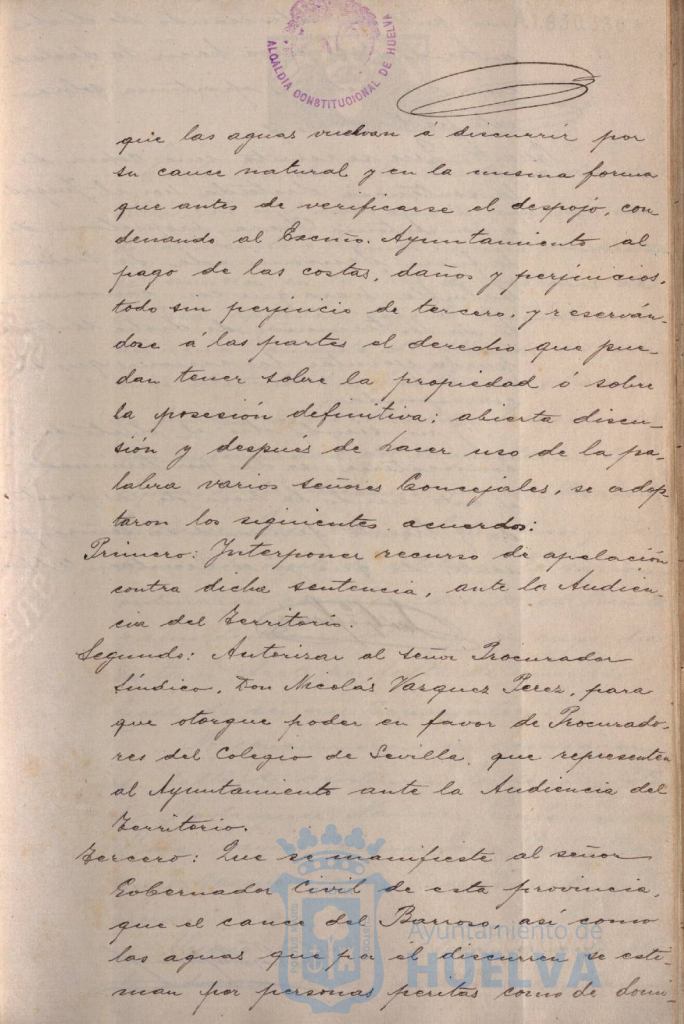 ALCALDIA CONSTITUCIONAL DE HUELVA
que las aguas vuelvan á discurrir por
su cauce natural y en la misma forma
que antes de verificarse el despojo, con
denando al Excmo. Ayuntamiento al
pago de las costas, daños y perjuicios,
todo sin perjuicio de tercero, y reserván-
dose á las partes el derecho que pue-
dan tener sobre la propiedad ó sobre
la posesión definitiva; abierta discu-
sión y después de hacer uso de la pa-
labra varios señores Concejales, se adop-
taron los siguientes acuerdos:
Primero: Interponer recurso de apelación
contra dicha sentencia, ante la Audien-
cia del Territorio.
Segundo: Autorizar al señor Procurador
Síndico, Don Nicolás Vazquez Perez, para
que otorgue poder en favor de Procurado-
res del Colegio de Sevilla, que representen
al Ayuntamiento ante la Audiencia del
Territorio.
Tercero: Que se manifieste al señor
Gobernador Civil de esta provincia,
que el cauce del Barroso, así como
las aguas que por él discurren se esti-
man por personas peritas como de domi-
Ayuntamiento de
HUELVA